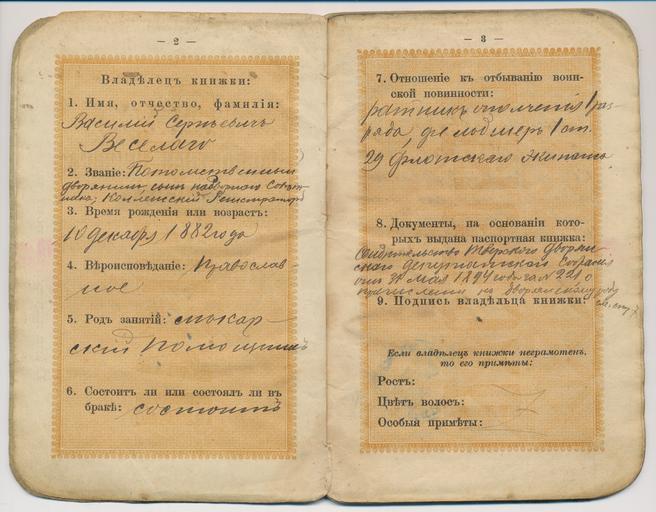 — 2 —
Владѣлецъ книжки:
1. Имя, отчество, фамилія:
Василій Сергѣевичъ
Веселаго
2. Званіе: Потомственный
дворянинъ сынъ надворнаго Совѣт-
ника; Коллежскій Регистраторъ
3. Время рожденія или возрастъ:
10 декабря 1882 года
4. Вѣроисповѣданіе: Православ
ное
5. Родъ занятій:
скій помощникъ
6. Состоитъ ли или состоялъ ли въ
бракѣ: состоитъ
— 3 —
7. Отношеніе къ отбыванію воин-
ской повинности:
ратникъ ополченія 1 раз-
ряда, 1 ст.
29 Флотскаго Экипажа
8. Документы, на основаніи кото-
рыхъ выдана паспортная книжка:
Свидѣтельство Тверского Дворян-
скаго Депутатскаго Собранія
отъ 31 мая 1894 года за № 221 о
причисленіи къ дворянскому роду
9. Подпись владѣльца книжки:
см. стр. 7
Если владѣлецъ книжки неграмотенъ,
то его примѣты:
Ростъ:
Цвѣтъ волосъ:
Особыя примѣты: